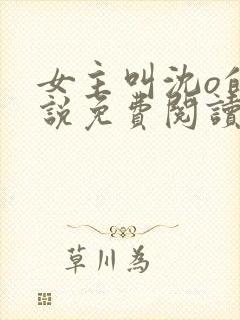 女主叫沈o
說免費閱讀
草川為